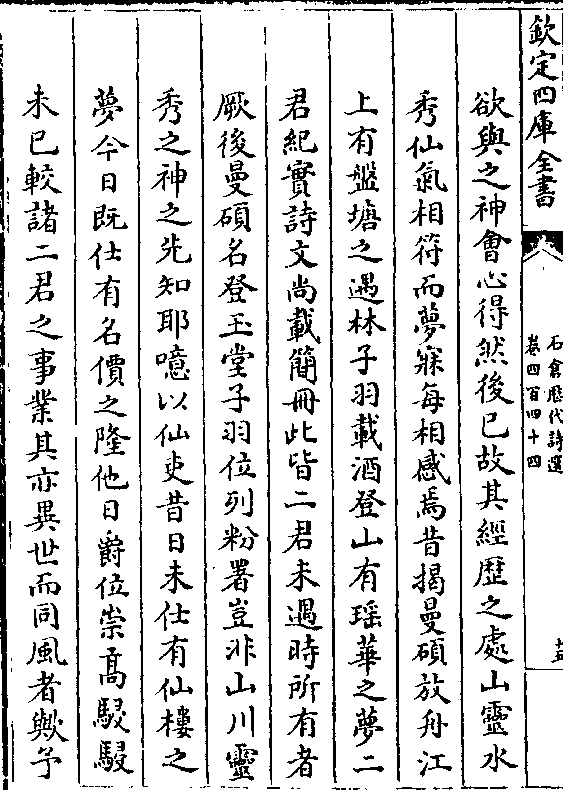 欽定四庫全書
石倉歷代詩選
卷四百四十四
欲與之神會心得然後已故其經歷之處山靈水
秀仙氣相符而夢寐每相感焉昔揭曼碩放舟江
上有盤塘之遇林子羽載酒登山有瑶華之夢二
君紀實詩文尚載簡冊此皆二君未遇時所有者
厥後曼碩名登玉堂子羽位列粉署豈非山川靈
秀之神之先知耶噫以仙吏昔日未仕有仙樓之
夢今日既仕有名價之隆他日爵位崇髙駸駸
未已較諸二君之事業其亦異世而同風者歟予